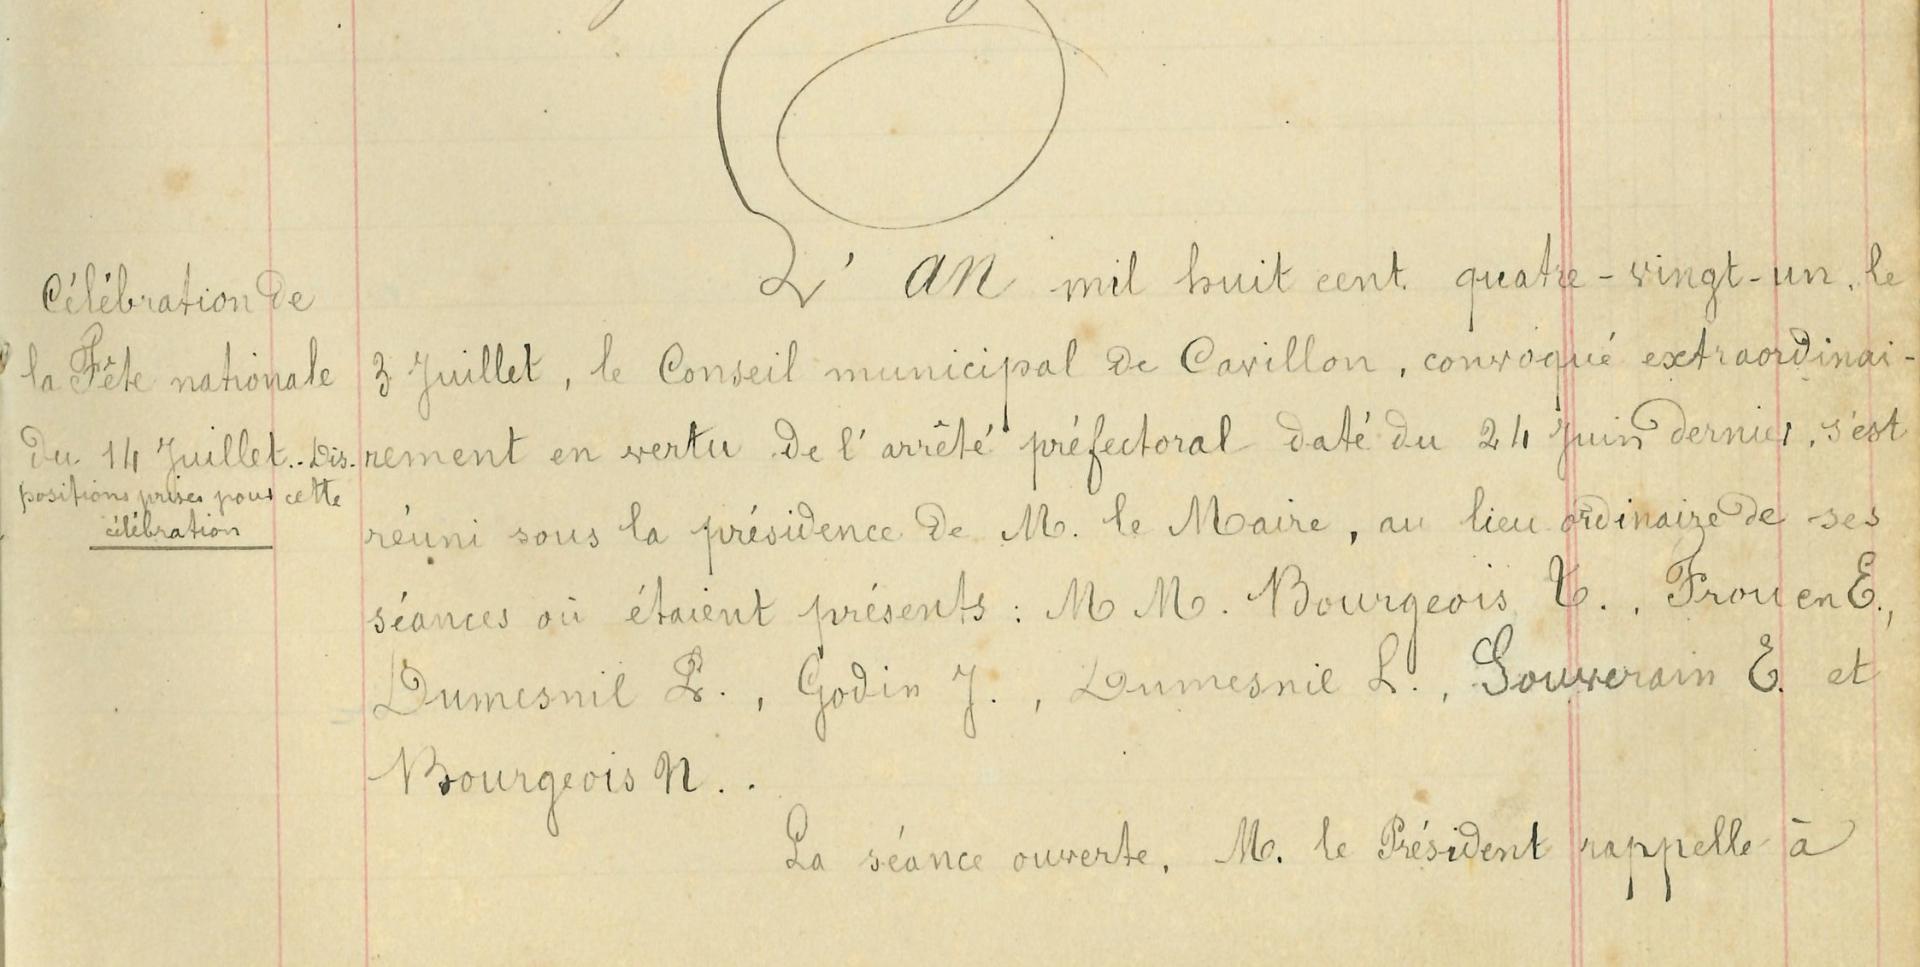 Célébration de
la Fête nationale
du 14 Juillet.. Dis-
positions prises pour cette
célébration
L'an mil huit cent quatre-vingt-un, le
3 Juillet, le Conseil municipal de Cavillon, convoqué extraordinai-
rement en vertu de l'arrêté préfectoral daté du 24 Juin dernier, s'est
réuni sous la présidence de M. le Maire, au lieu ordinaire de ses
séances où étaient présents : M M. Bourgeois, Frouen E.,
Dumesnil P., Godin J., Dumesnil L., Souverain E. et
Bourgeois N..
La séance ouverte, M. le Président rappelle à